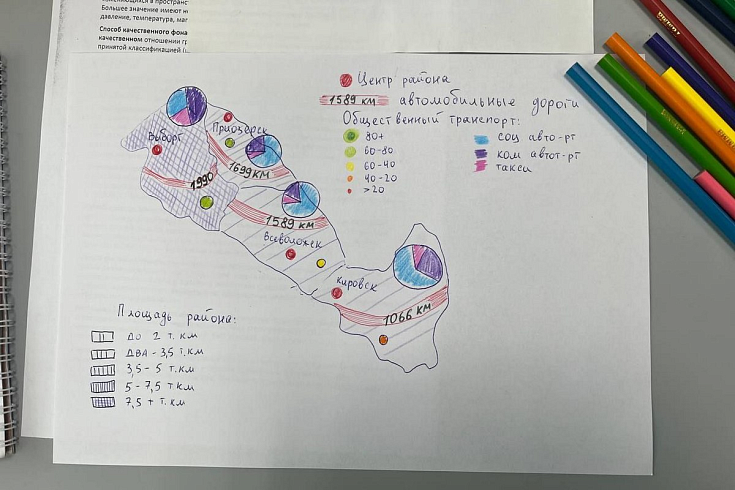 Большее значение имеют
давление, температура,
Способ качественного фона
качественном отношении
принятой классификацией
Центр района
1589 КМ автомобильные дороги
Общественный транспорт:
80+
60-80
60-40
40-20
>20
соц авто-рт
ком автот-рт
такси
Выборг
Приозерск
1699 КМ
1990
1589 КМ
Всеволожск
Кировск
1066 КМ
Площадь района:
до 2 т.км
два - 3,5 т.км
3,5 - 5 т.км
5 - 7,5 т км
7,5 + т.км